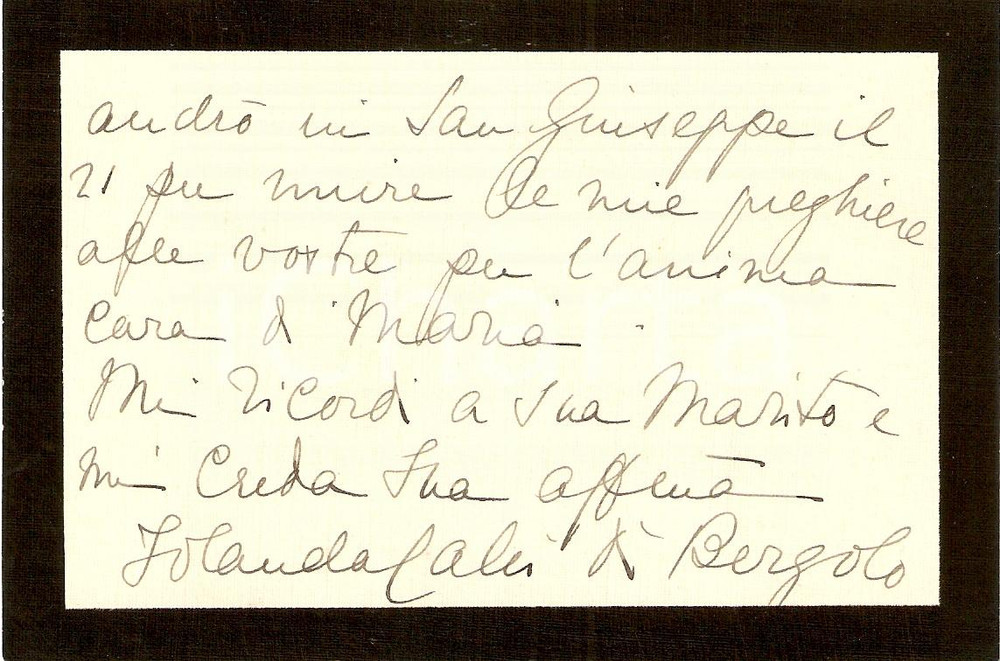 andrò in San Giuseppe il
21 per unire le mie preghiere
alle vostre per l'anima
cara di Maria.
Mi ricordi a Sua Marito e
mi creda Sua affma
Jolanda Calvi di Bergolo